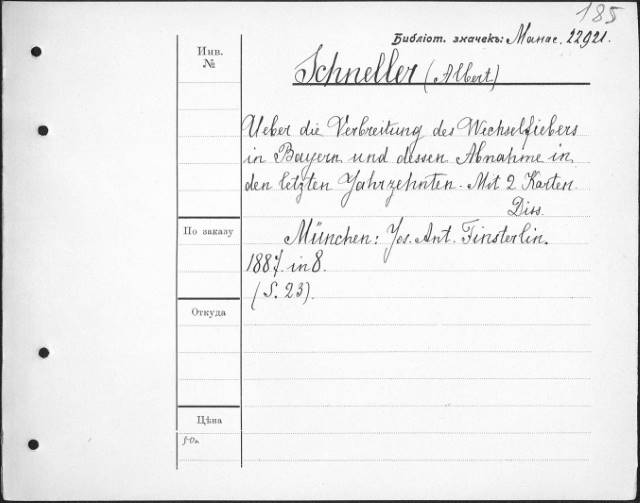 185
Библіот. значекъ: Манас. 22921.
Инв.
№
Schneller (Albert)
Ueber die Verbreitung des Wechselfiebers
in Bayern und dessen Abnahme in
den letzten Jahrzehnten. Mit 2 Karten.
Diss.
По заказу
München: Jos. Ant. Finsterlin.
1887. in 8.
(S. 23).
Откуда
Цѣна